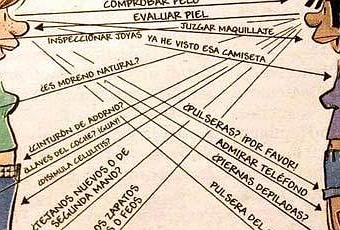 COMPROBAR PELO
EVALUAR PIEL
JUZGAR MAQUILLAJE
INSPECCIONAR JOYAS
YA HE VISTO ESA CAMISETA
¿ES MORENO NATURAL?
¿CINTURÓN DE ADORNO?
¿LLAVES DEL COCHE? ¡GUAY!
¿DISIMULA CELULITIS?
¿PULSERAS? ¡POR FAVOR!
ADMIRAR TELÉFONO
¿PIERNAS DEPILADAS?
PULSERA DEL
TEJANOS NUEVOS O DE
SEGUNDA MANO?
OS ZAPATOS
O FEOS